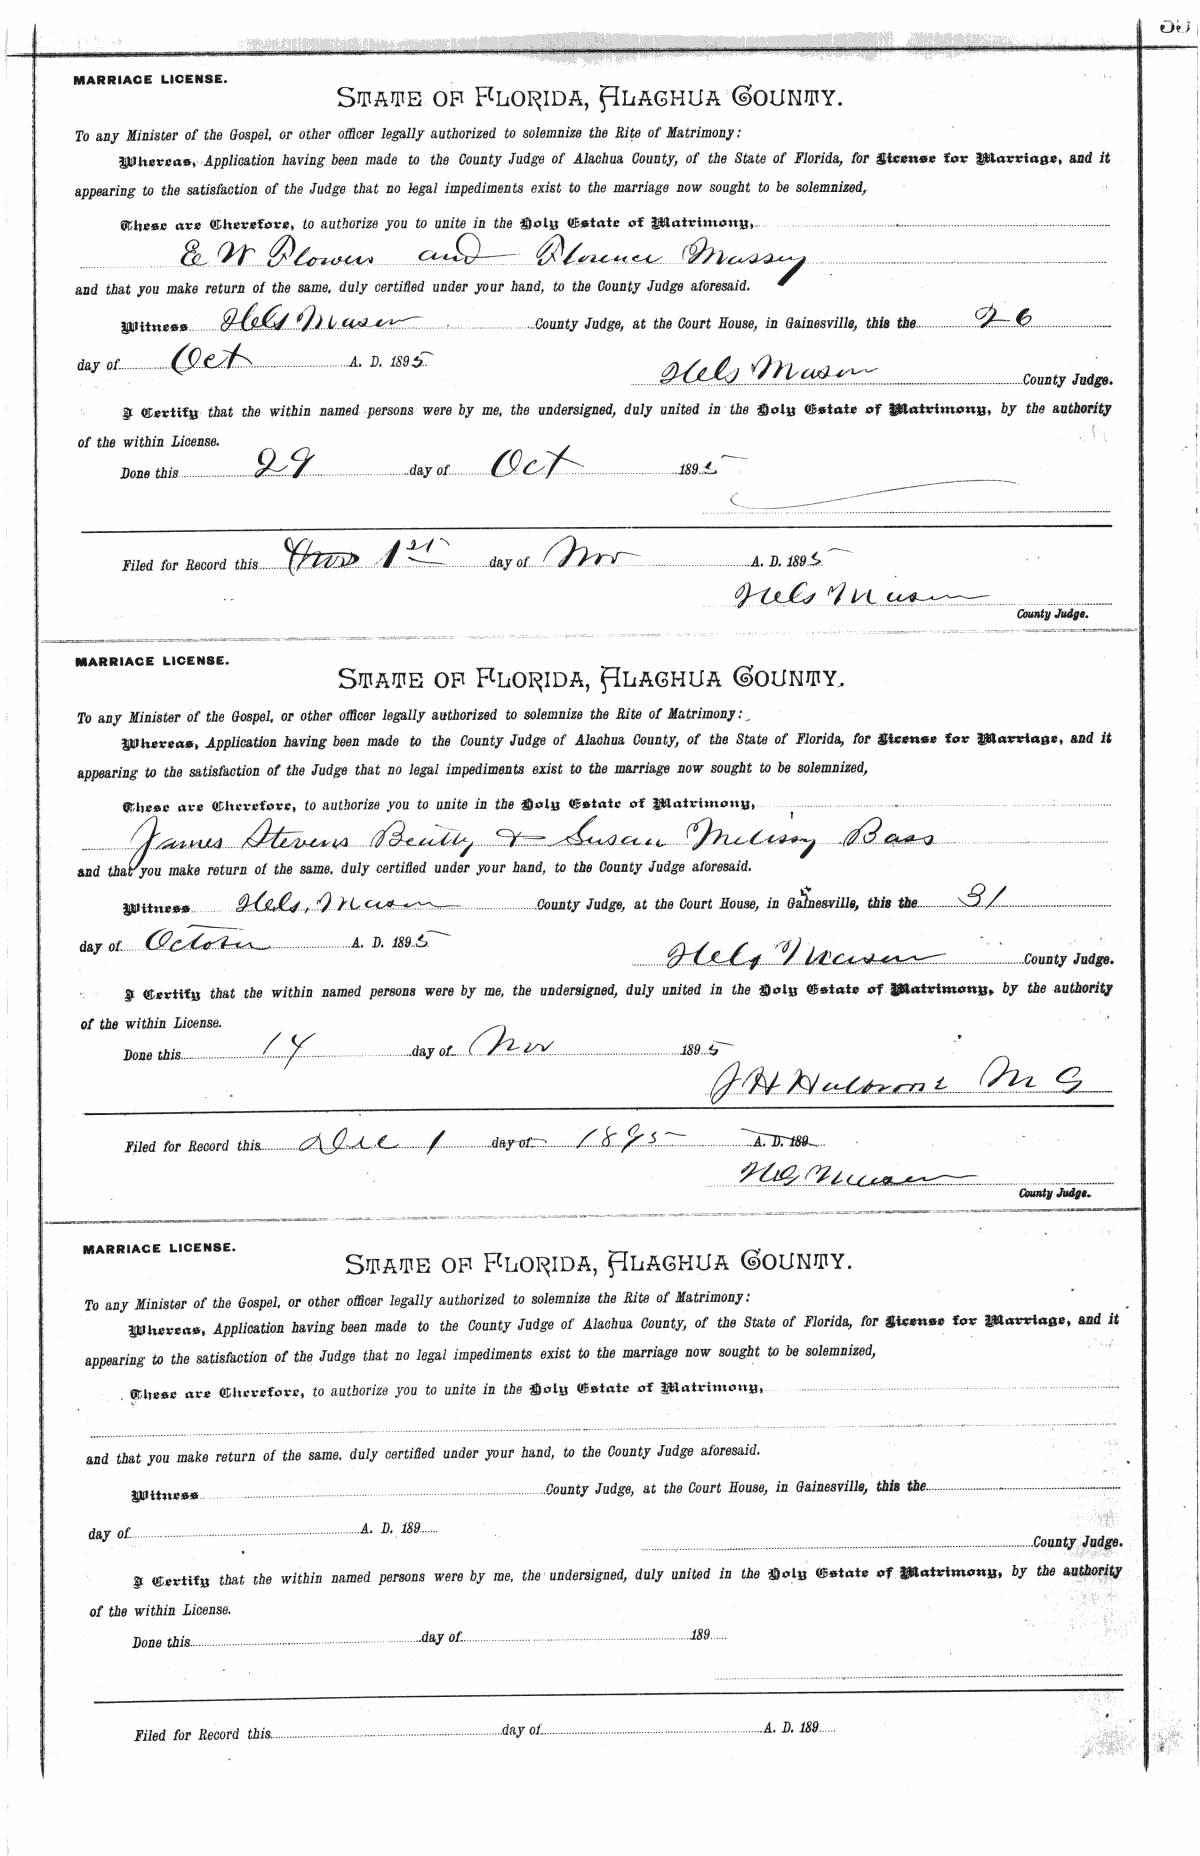 MARRIAGE LICENSE.
STATE OF FLORIDA, ALACHUA COUNTY.
To any Minister of the Gospel, or other officer legally authorized to solemnize the Rite of Matrimony:
Whereas, Application having been made to the County Judge of Alachua County, of the State of Florida, for License for Marriage, and it
appearing to the satisfaction of the Judge that no legal impediments exist to the marriage now sought to be solemnized,
These are Therefore, to authorize you to unite in the Holy Estate of Matrimony,
E W Flowers and Florence Massey
and that you make return of the same, duly certified under your hand, to the County Judge aforesaid.
Witness Mason County Judge, at the Court House, in Gainesville, this the 26
day of Oct A. D. 1895
Mason County Judge.
I Certify that the within named persons were by me, the undersigned, duly united in the Holy Estate of Matrimony, by the authority
of the within License.
Done this 29 day of Oct 1895
Filed for Record this 1st day of Nov A. D. 1895
Mason
County Judge.
MARRIAGE LICENSE.
STATE OF FLORIDA, ALACHUA COUNTY.
To any Minister of the Gospel, or other officer legally authorized to solemnize the Rite of Matrimony:
Whereas, Application having been made to the County Judge of Alachua County, of the State of Florida, for License for Marriage, and it
appearing to the satisfaction of the Judge that no legal impediments exist to the marriage now sought to be solemnized,
These are Therefore, to authorize you to unite in the Holy Estate of Matrimony,
James Stevens Beatty & Susan Melissy Bass
and that you make return of the same, duly certified under your hand, to the County Judge aforesaid.
Witness Mason County Judge, at the Court House, in Gainesville, this the 31
day of October A. D. 1895
Mason County Judge.
I Certify that the within named persons were by me, the undersigned, duly united in the Holy Estate of Matrimony, by the authority
of the within License.
Done this 14 day of Nov 1895
J H M G
Filed for Record this Dec 1 day of 1895 A. D. 189
Mason
County Judge.
MARRIAGE LICENSE.
STATE OF FLORIDA, ALACHUA COUNTY.
To any Minister of the Gospel, or other officer legally authorized to solemnize the Rite of Matrimony:
Whereas, Application having been made to the County Judge of Alachua County, of the State of Florida, for License for Marriage, and it
appearing to the satisfaction of the Judge that no legal impediments exist to the marriage now sought to be solemnized,
These are Therefore, to authorize you to unite in the Holy Estate of Matrimony,
and that you make return of the same, duly certified under your hand, to the County Judge aforesaid.
Witness County Judge, at the Court House, in Gainesville, this the
day of A. D. 189
County Judge.
I Certify that the within named persons were by me, the undersigned, duly united in the Holy Estate of Matrimony, by the authority
of the within License.
Done this day of 189
Filed for Record this day of A. D. 189